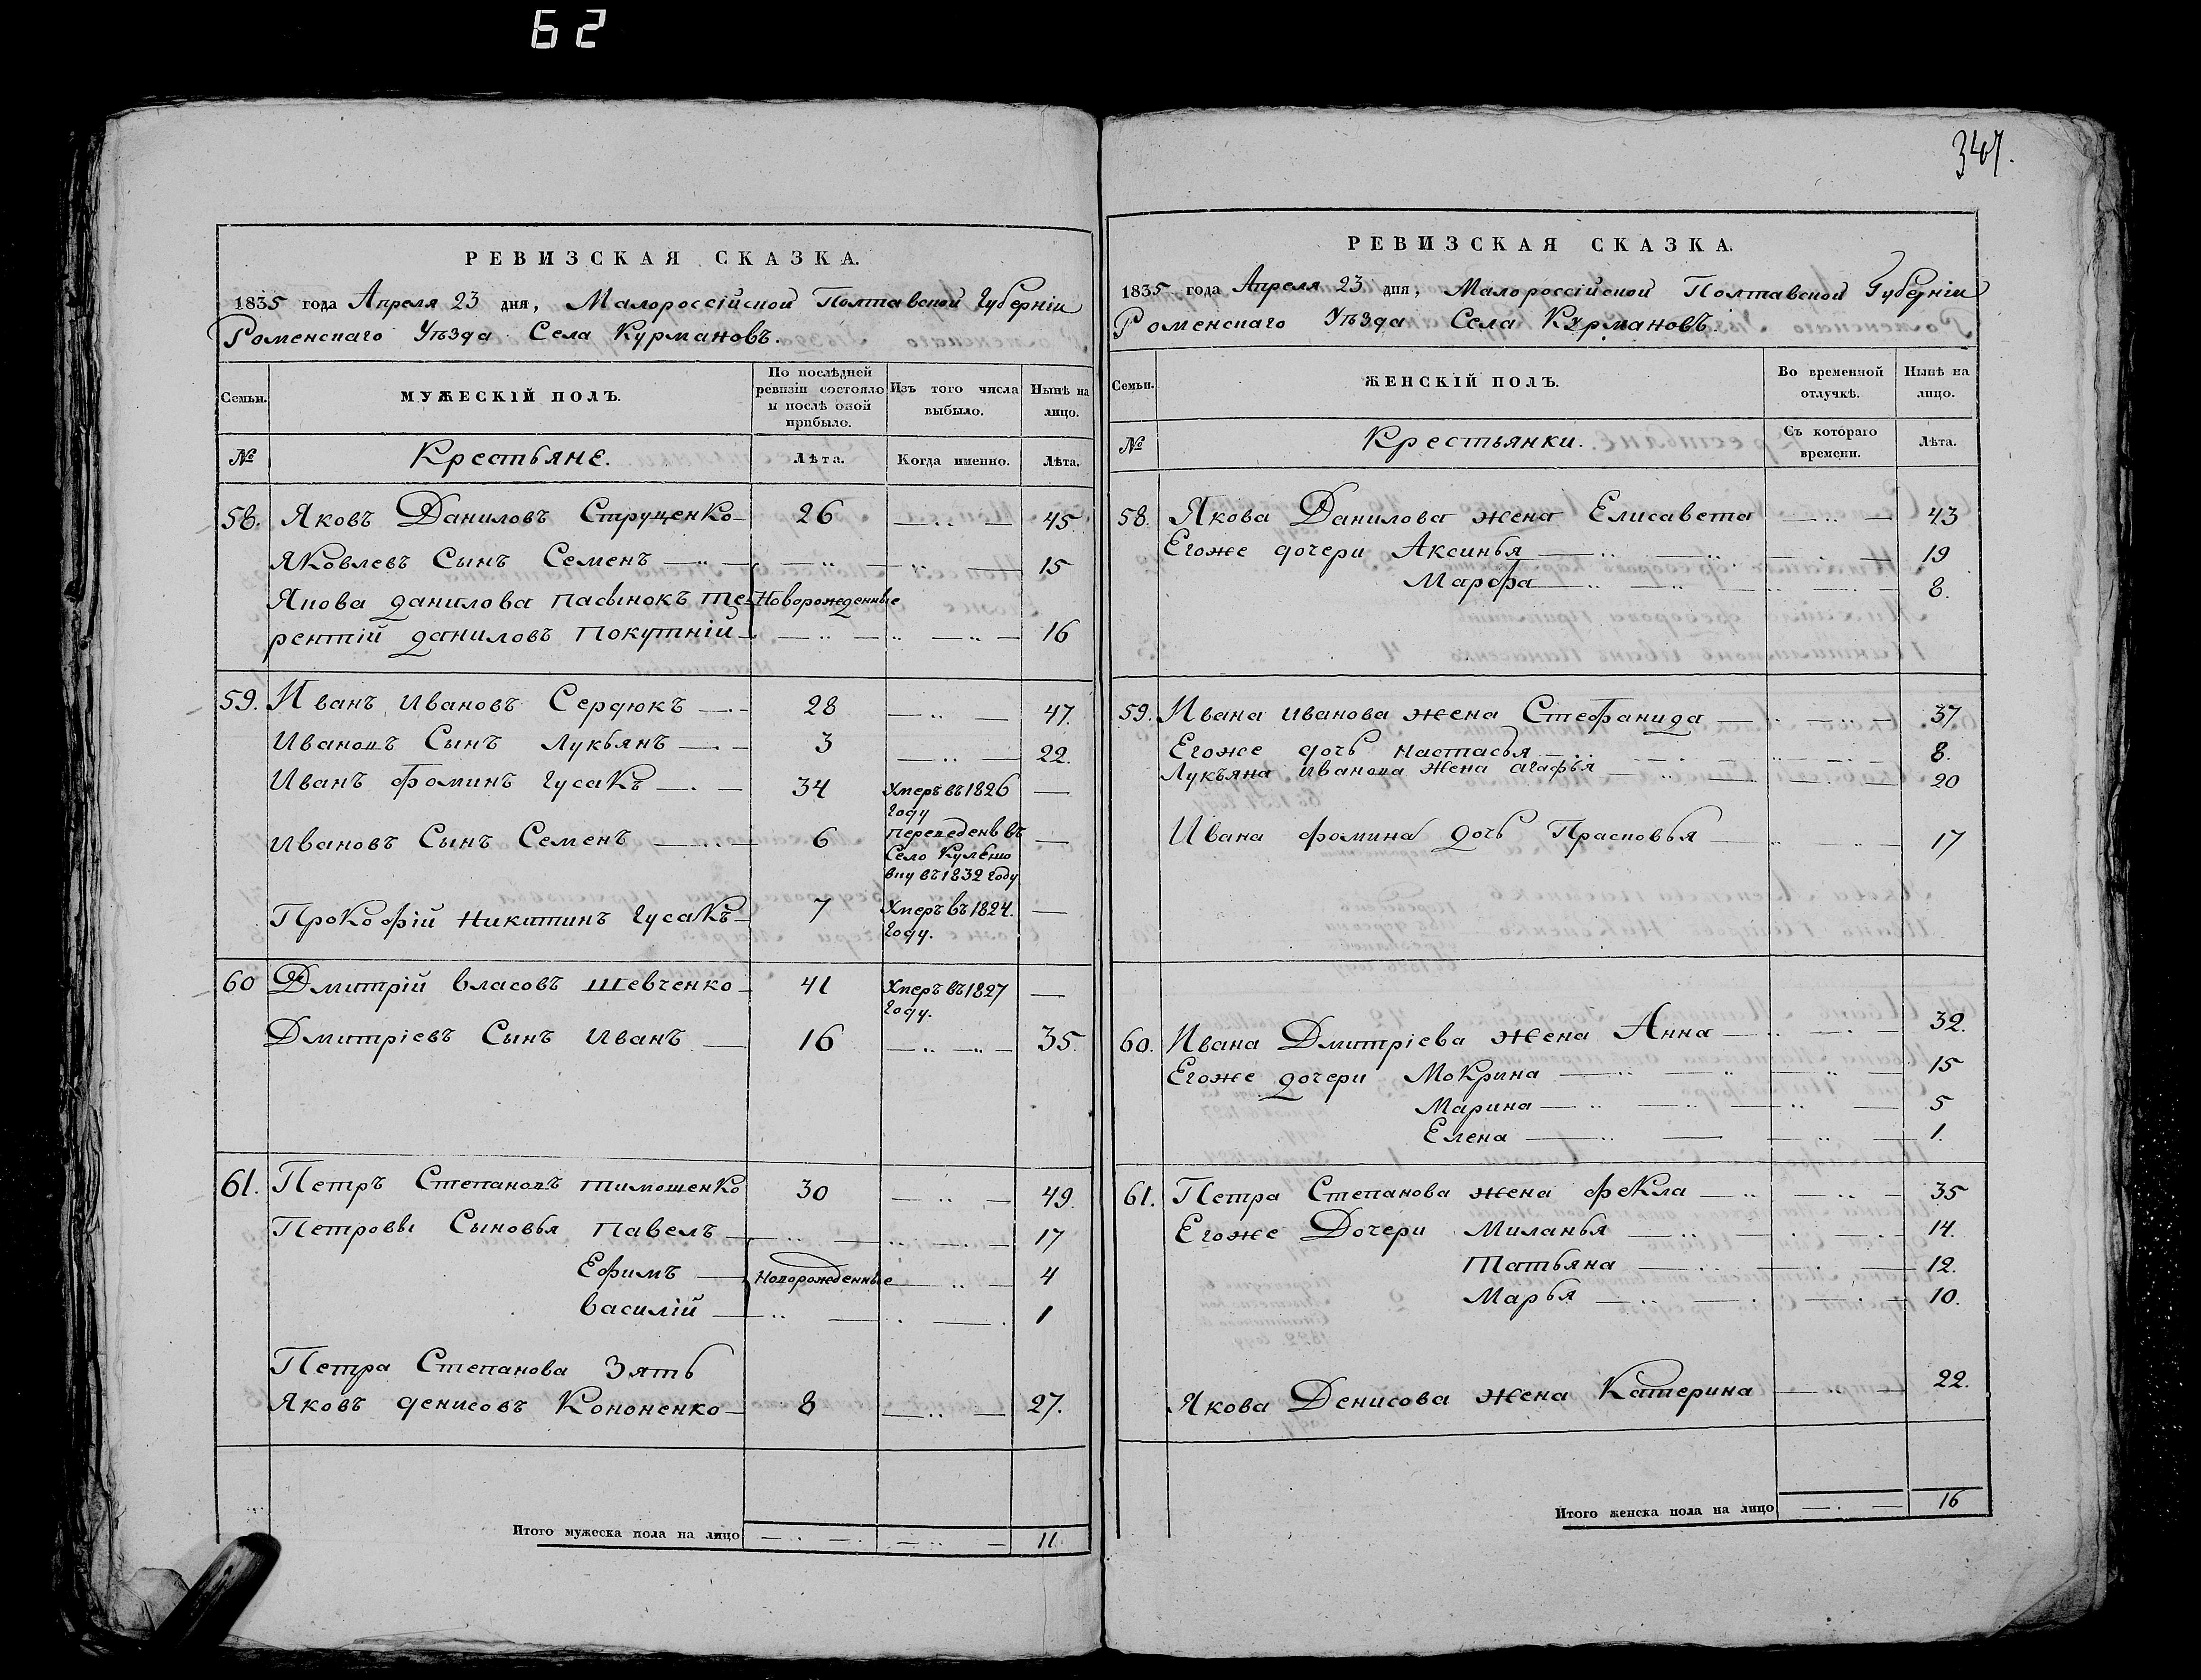 62
347.
РЕВИЗСКАЯ СКАЗКА.
1835 года Апреля 23 дня, Малороссійской Полтавской Губерніи
Роменскаго Уѣзда Села Курмановъ.
Семьи.
МУЖЕСКІЙ ПОЛЪ.
По послѣдней ревизіи состояло и послѣ оной прибыло.
Изъ того числа выбыло.
Нынѣ на лицо.
№ Крестьяне. Лѣта. Когда именно. Лѣта.
58. Яковъ Даниловъ Струщенко 26 45
Яковлевъ Сынъ Семенъ 15
Якова данилова пасынокъ Те- Новорожденные
рентій даниловъ Покутній 16
59. Иванъ Ивановъ Сердюкъ 28 47.
Ивановъ Сынъ Лукьянъ 3 22.
Иванъ Фоминъ Гусакъ 34 Умеръ въ 1826 году
Ивановъ Сынъ Семенъ 6 переведенъ въ Село Кулешовку въ 1832 году
Прокофій Никитинъ Гусакъ 7 Умеръ въ 1824. году.
60 Дмитрій Власовъ Шевченко 41 Умеръ въ 1827 году.
Дмитріевъ Сынъ Иванъ 16 35.
61. Петръ Степановъ Тимошенко 30 49.
Петровы Сыновья Павелъ 17
Ефимъ Новорожденные 4
Василій 1
Петра Степанова Зять
Яковъ Денисовъ Кононенко 8 27.
Итого мужеска пола на лицо 11.
РЕВИЗСКАЯ СКАЗКА.
1835 года Апреля 23 дня, Малороссійской Полтавской Губерніи
Роменскаго Уѣзда Села Курмановъ.
Семьи.
ЖЕНСКІЙ ПОЛЪ.
Во временной отлучкѣ.
Нынѣ на лицо.
№ Крестьянки. Съ котораго времени. Лѣта.
58. Якова Данилова жена Елисавета 43
Егоже дочери Аксинья 19
Марфа 8.
59. Ивана Иванова жена Стефанида 37
Егоже дочь Настасья 8.
Лукъяна Иванова жена Агафья 20
Ивана Фомина дочь Прасковья 17
60. Ивана Дмитріева жена Анна 32.
Егоже дочери Мокрина 15
Марина 5
Елена 1.
61. Петра Степанова жена Фекла 35
Егоже Дочери Миланья 14.
Татьяна 12.
Марья 10.
Якова Денисова жена Катерина 22.
Итого женска пола на лицо 16